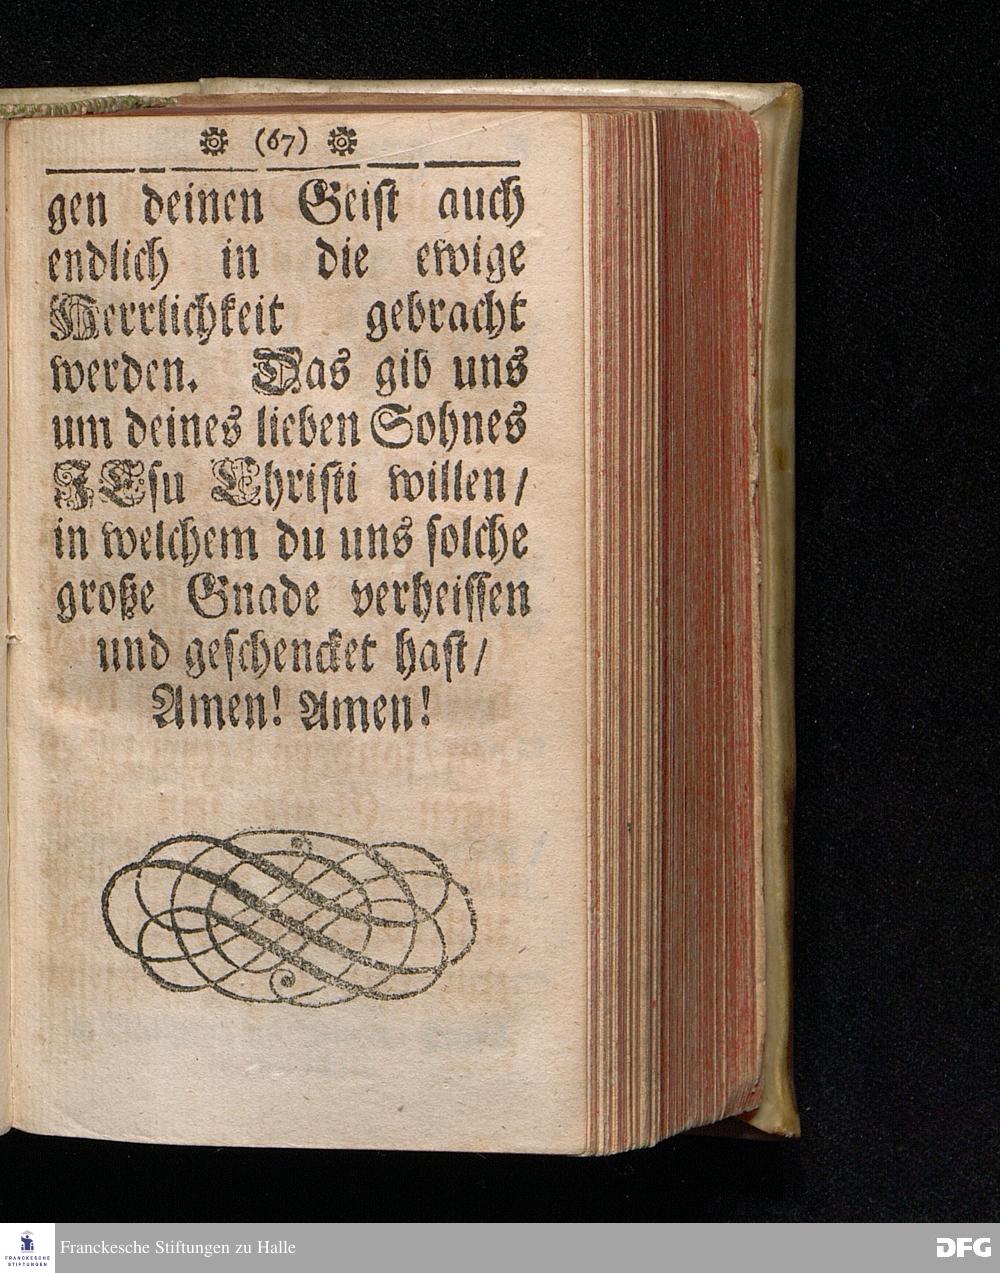 (67)
gen deinen Geist auch
endlich in die ewige
Herrlichkeit gebracht
werden. Das gib uns
um deines lieben Sohnes
JEsu Christi willen/
in welchem du uns solche
große Gnade verheissen
und geschencket hast/
Amen! Amen!
FRANCKESCHE
STIFTUNGEN
Franckesche Stiftungen zu Halle
DFG